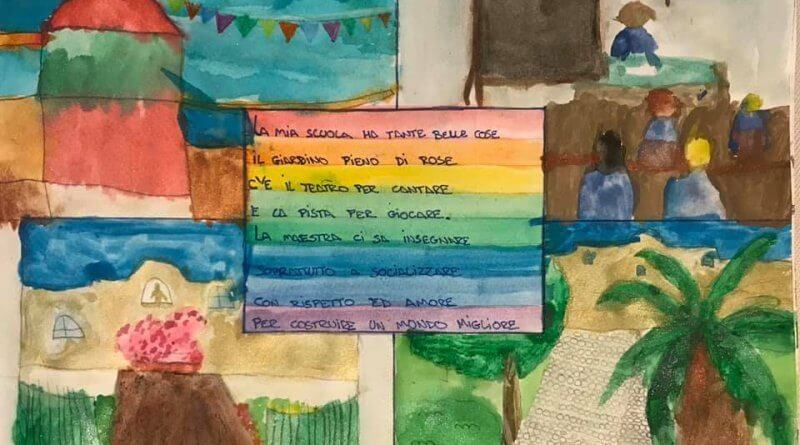 LA MIA SCUOLA HA TANTE BELLE COSE
IL GIARDINO PIENO DI ROSE
C'E IL TEATRO PER CANTARE
E LA PISTA PER GIOCARE.
LA MAESTRA CI SA INSEGNARE
SOPRATTUTTO A SOCIALIZZARE
CON RISPETTO ED AMORE
PER COSTRUIRE UN MONDO MIGLIORE